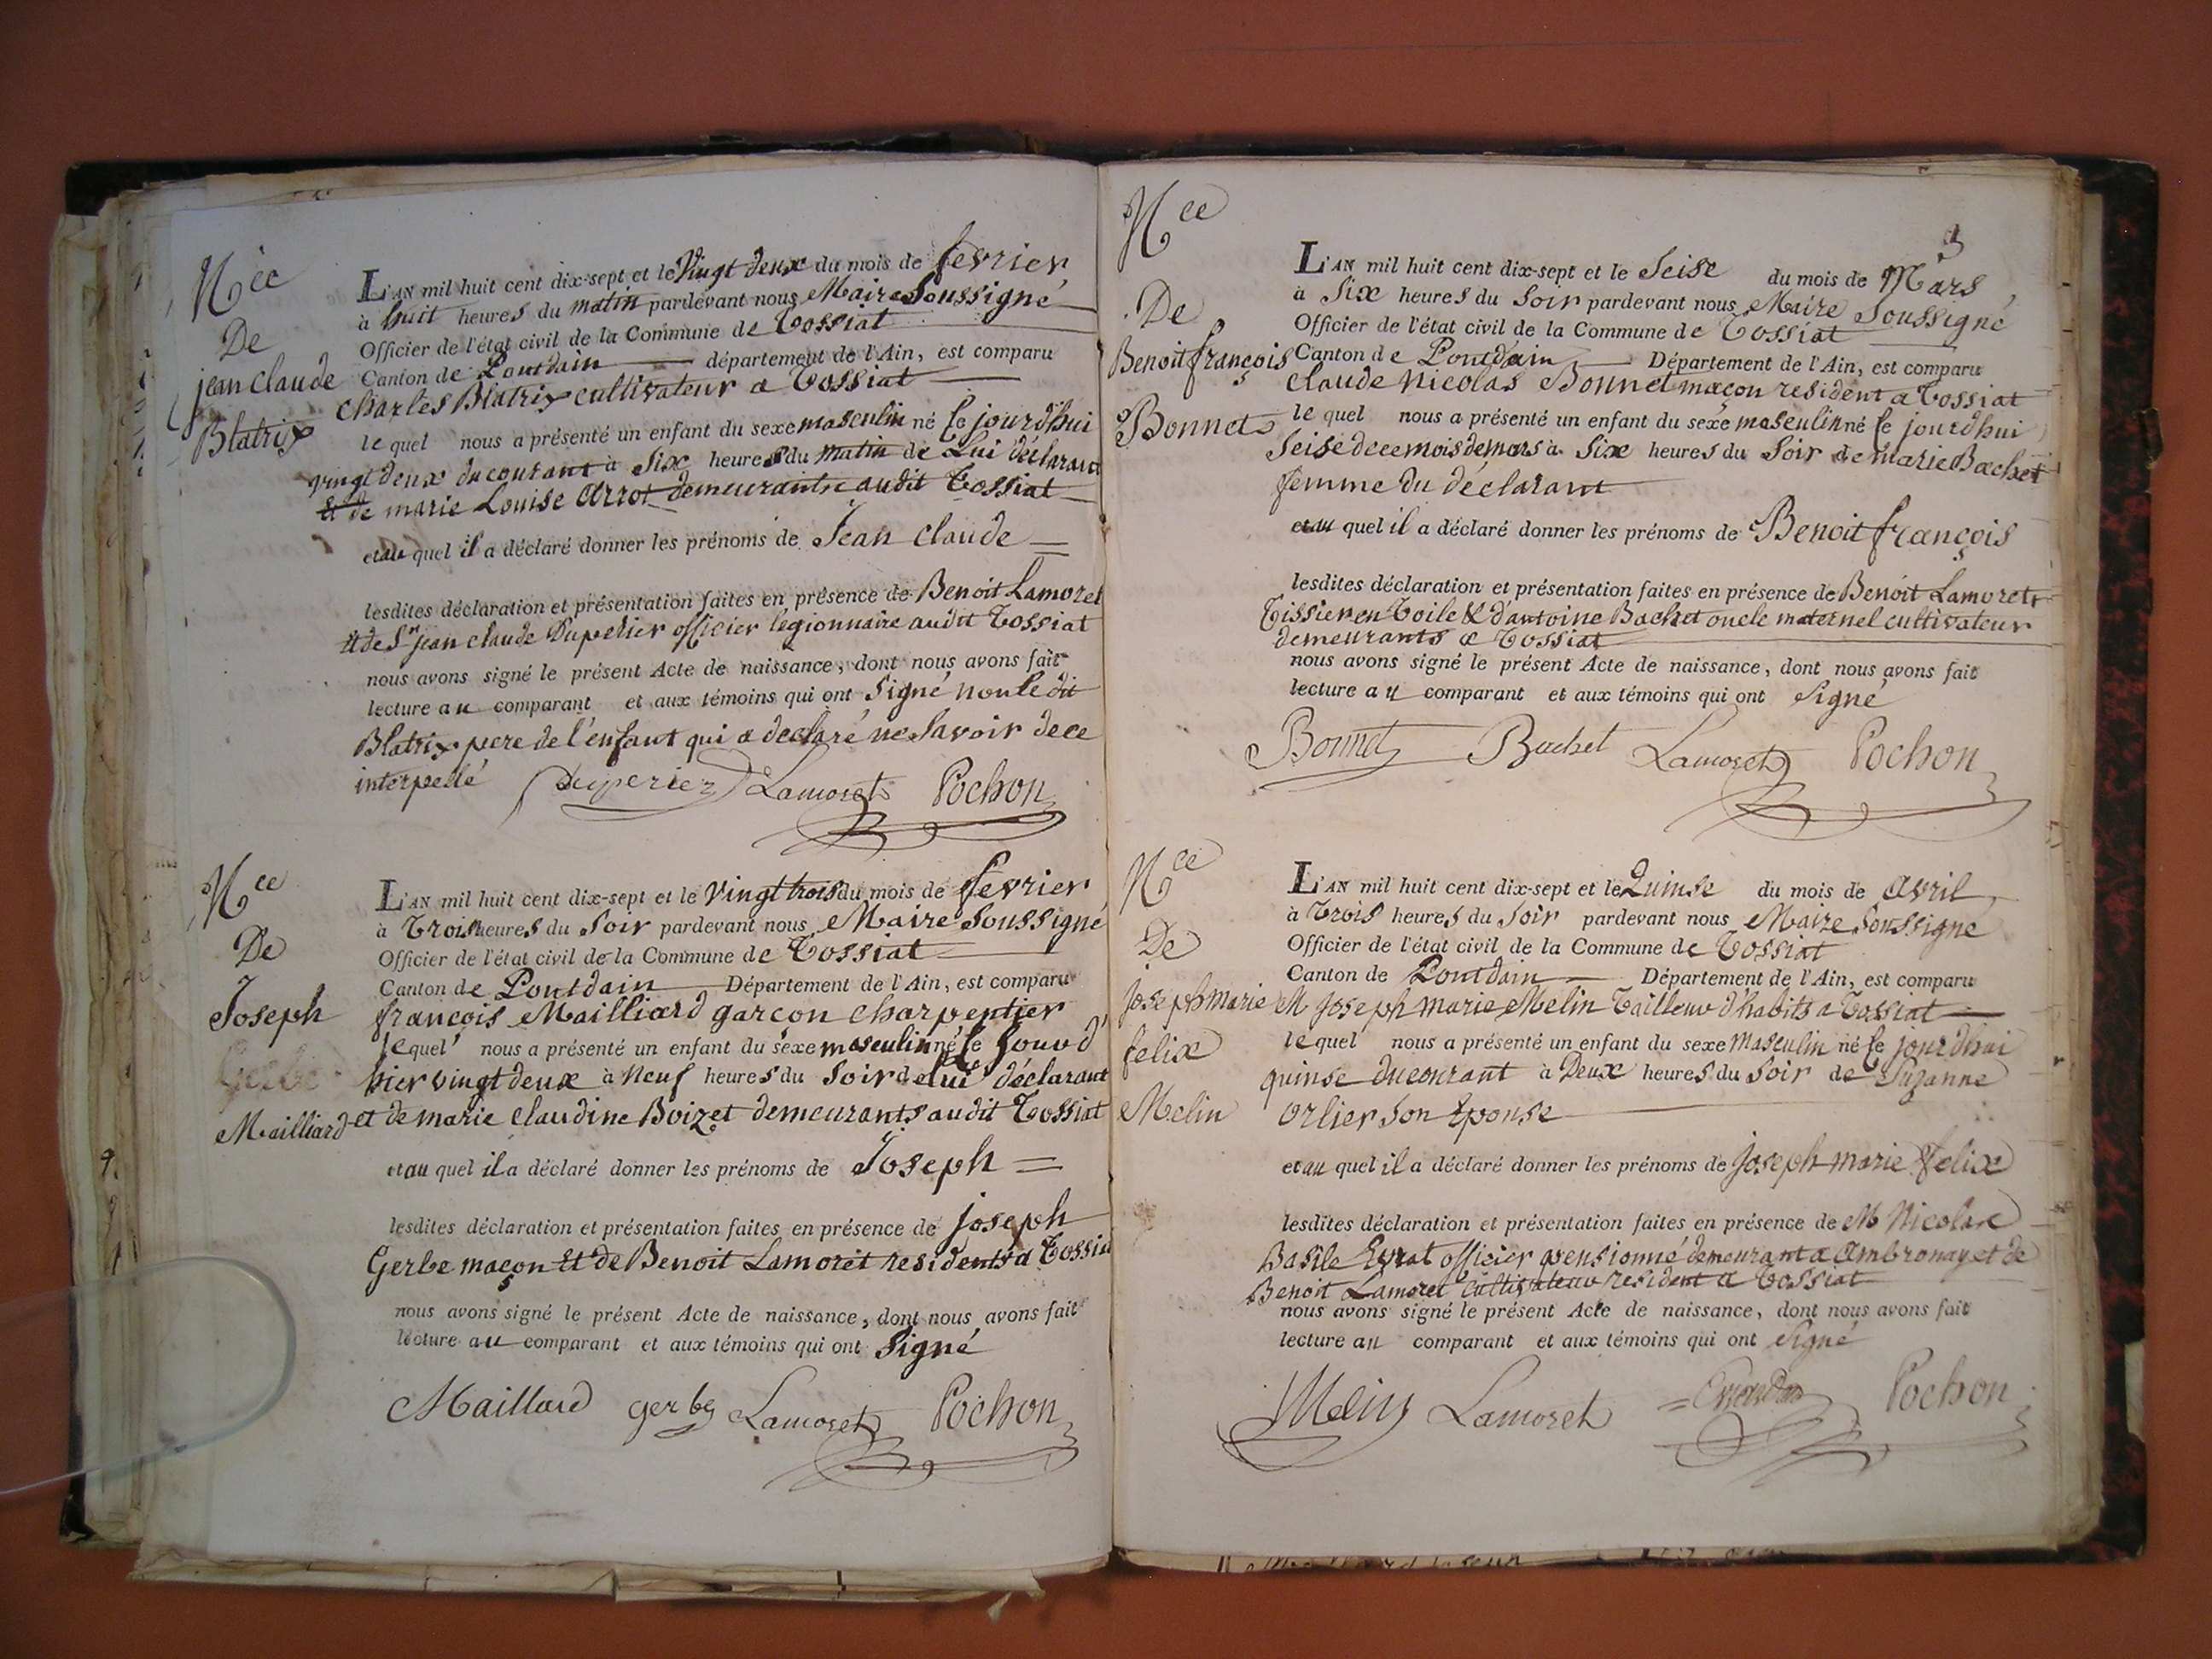 Nce
De
jean claude
Blatrix
L'AN mil huit cent dix-sept et le Vingt deux du mois de fevrier
à huit heures du matin pardevant nous Maire Soussigné
Officier de l'état civil de la Commune de Tossiat
Canton de Pontdain département de l'Ain, est comparu
Charles Blatrix cultivateur a Tossiat
le quel nous a présenté un enfant du sexe masculin né le jourd'hui
vingt deux du courant à Six heures du matin de Lui déclarant
et de marie Louise Arrot demeurants audit Tossiat
et au quel il a déclaré donner les prénoms de Jean Claude
lesdites déclaration et présentation faites en présence de Benoit Lamoret
et de Sr jean claude Duperier officier légionnaire audit Tossiat
nous avons signé le présent Acte de naissance, dont nous avons fait
lecture au comparant et aux témoins qui ont Signé non le dit
Blatrix pere de l'enfant qui a declaré ne Savoir de ce
interpellé Duperier Lamoret Pochon
Nce
De
Joseph
Gerbe
Mailliard
L'AN mil huit cent dix-sept et le Vingt trois du mois de fevrier
à Trois heures du Soir pardevant nous Maire Soussigné
Officier de l'état civil de la Commune de Tossiat
Canton de Pontdain Département de l'Ain, est comparu
françois Mailliard garçon Charpentier
lequel nous a présenté un enfant du sexe masculin né le Jourd'
hier vingt deux à Neuf heures du Soir de lui déclarant
et de marie Claudine Boizet demeurants audit Tossiat
et au quel il a déclaré donner les prénoms de Joseph
lesdites déclaration et présentation faites en présence de joseph
Gerbe maçon et de Benoit Lamoret residents a Tossiat
nous avons signé le présent Acte de naissance, dont nous avons fait
lecture au comparant et aux témoins qui ont Signé
Maillard gerbe Lamoret Pochon
3
Nce
De
Benoit françois
Bonnet
L'AN mil huit cent dix-sept et le Seise du mois de Mars
à Six heures du Soir pardevant nous Maire Soussigné
Officier de l'état civil de la Commune de Tossiat
Canton de Pontdain Département de l'Ain, est comparu
Claude Nicolas Bonnet maçon resident a Tossiat
le quel nous a présenté un enfant du sexe masculin né le jourdhui
Seise de ce mois de mars à Six heures du Soir de marie Bachet
femme du déclarant
et au quel il a déclaré donner les prénoms de Benoit françois
lesdites déclaration et présentation faites en présence de Benoit Lamoret
Tissier en Toile & d'antoine Bachet oncle maternel cultivateur
demeurants a Tossiat
nous avons signé le présent Acte de naissance, dont nous avons fait
lecture au comparant et aux témoins qui ont Signé
Bonnet Bachet Lamoret Pochon
Nce
De
joseph marie
felix
Melin
L'AN mil huit cent dix-sept et le Quinse du mois de avril
à Trois heures du Soir pardevant nous Maire Soussigné
Officier de l'état civil de la Commune de Tossiat
Canton de Pontdain Département de l'Ain, est comparu
M Joseph marie Melin Tailleur d'habits a Tossiat
lequel nous a présenté un enfant du sexe masculin né le jourdhui
quinse du courant à Deux heures du Soir de Suzanne
Orlier Son Epouse
et au quel il a déclaré donner les prénoms de Joseph marie felix
lesdites déclaration et présentation faites en présence de M Nicolas
Basile Evrat officier pensionné demeurant a Ambronay et de
Benoit Lamoret Cultivateur resident a Tossiat
nous avons signé le présent Acte de naissance, dont nous avons fait
lecture au comparant et aux témoins qui ont Signé
Melin Lamoret Pochon